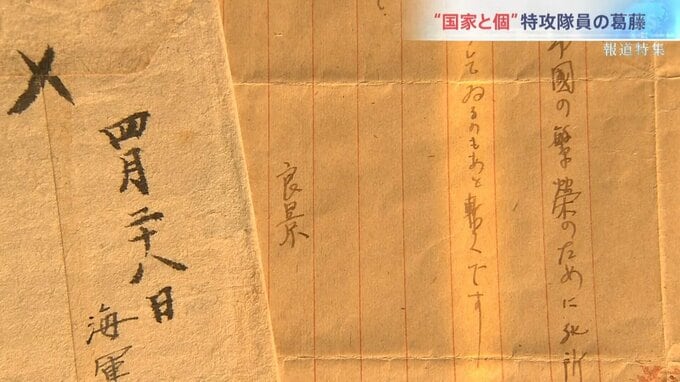 “国家と個”特攻隊員の葛藤
報道特集
國の繁栄のために死所
してゐるのもあと くです
良景
〆
四月二十八日
海軍